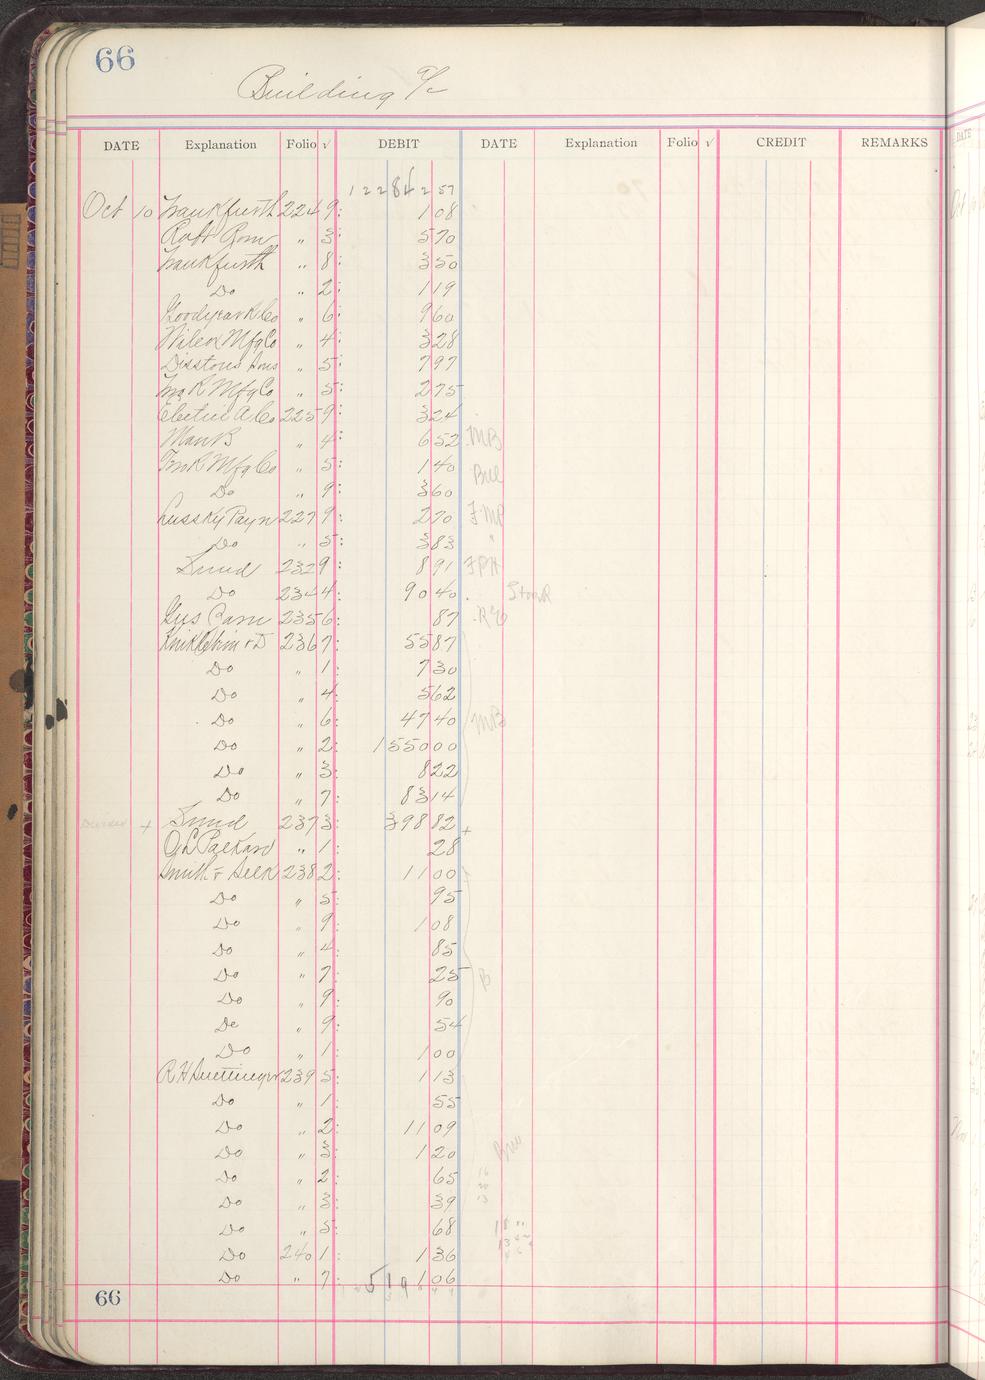 66
Building a/c
DATE Explanation Folio √ DEBIT DATE Explanation Folio √ CREDIT REMARKS
1228 2 57
Oct 10 Frankfurth 224 9: 1 08
Robt Rom " 3: 5 70
Frankfurth " 8: 3 50
Do " 2: 1 19
Goodyear R Co " 6: 9 60
Wilcox Mfg Co " 4: 3 28
Disstons Sons " 5: 7 97
Mfg Co " 5: 2 75
Electric A. Co 225 9: 3 24
" 4: 6 52 MB
Mfg Co " 5: 1 40
Do " 9: 3 60
Payn 227 9: 2 70
Do " 5: 3 83 "
Sund 232 9: 8 91
Do 234 4: 90 40 Stock
Gus 235 6: 87
236 7: 55 87
Do " 1: 7 30
Do " 4: 5 62
Do " 6: 47 40 MB
Do " 2: 1550 00
Do " 3: 8 22
Do " 7: 83 14
+ Sund 237 3: 398 82 +
O L Packard " 1: 28
Smith & 238 2: 11 00
Do " 5: 95
Do " 9: 1 08
Do " 4: 85
Do " 7: 25 B
Do " 9: 90
Do " 9: 54
Do " 1: 1 00
R H 239 5: 1 13
Do " 1: 55
Do " 2: 11 09
Do " 3: 1 20
Do " 2: 65
Do " 3: 39
Do " 5: 68
Do 240 1: 1 36
Do " 7: 1 06
519
66